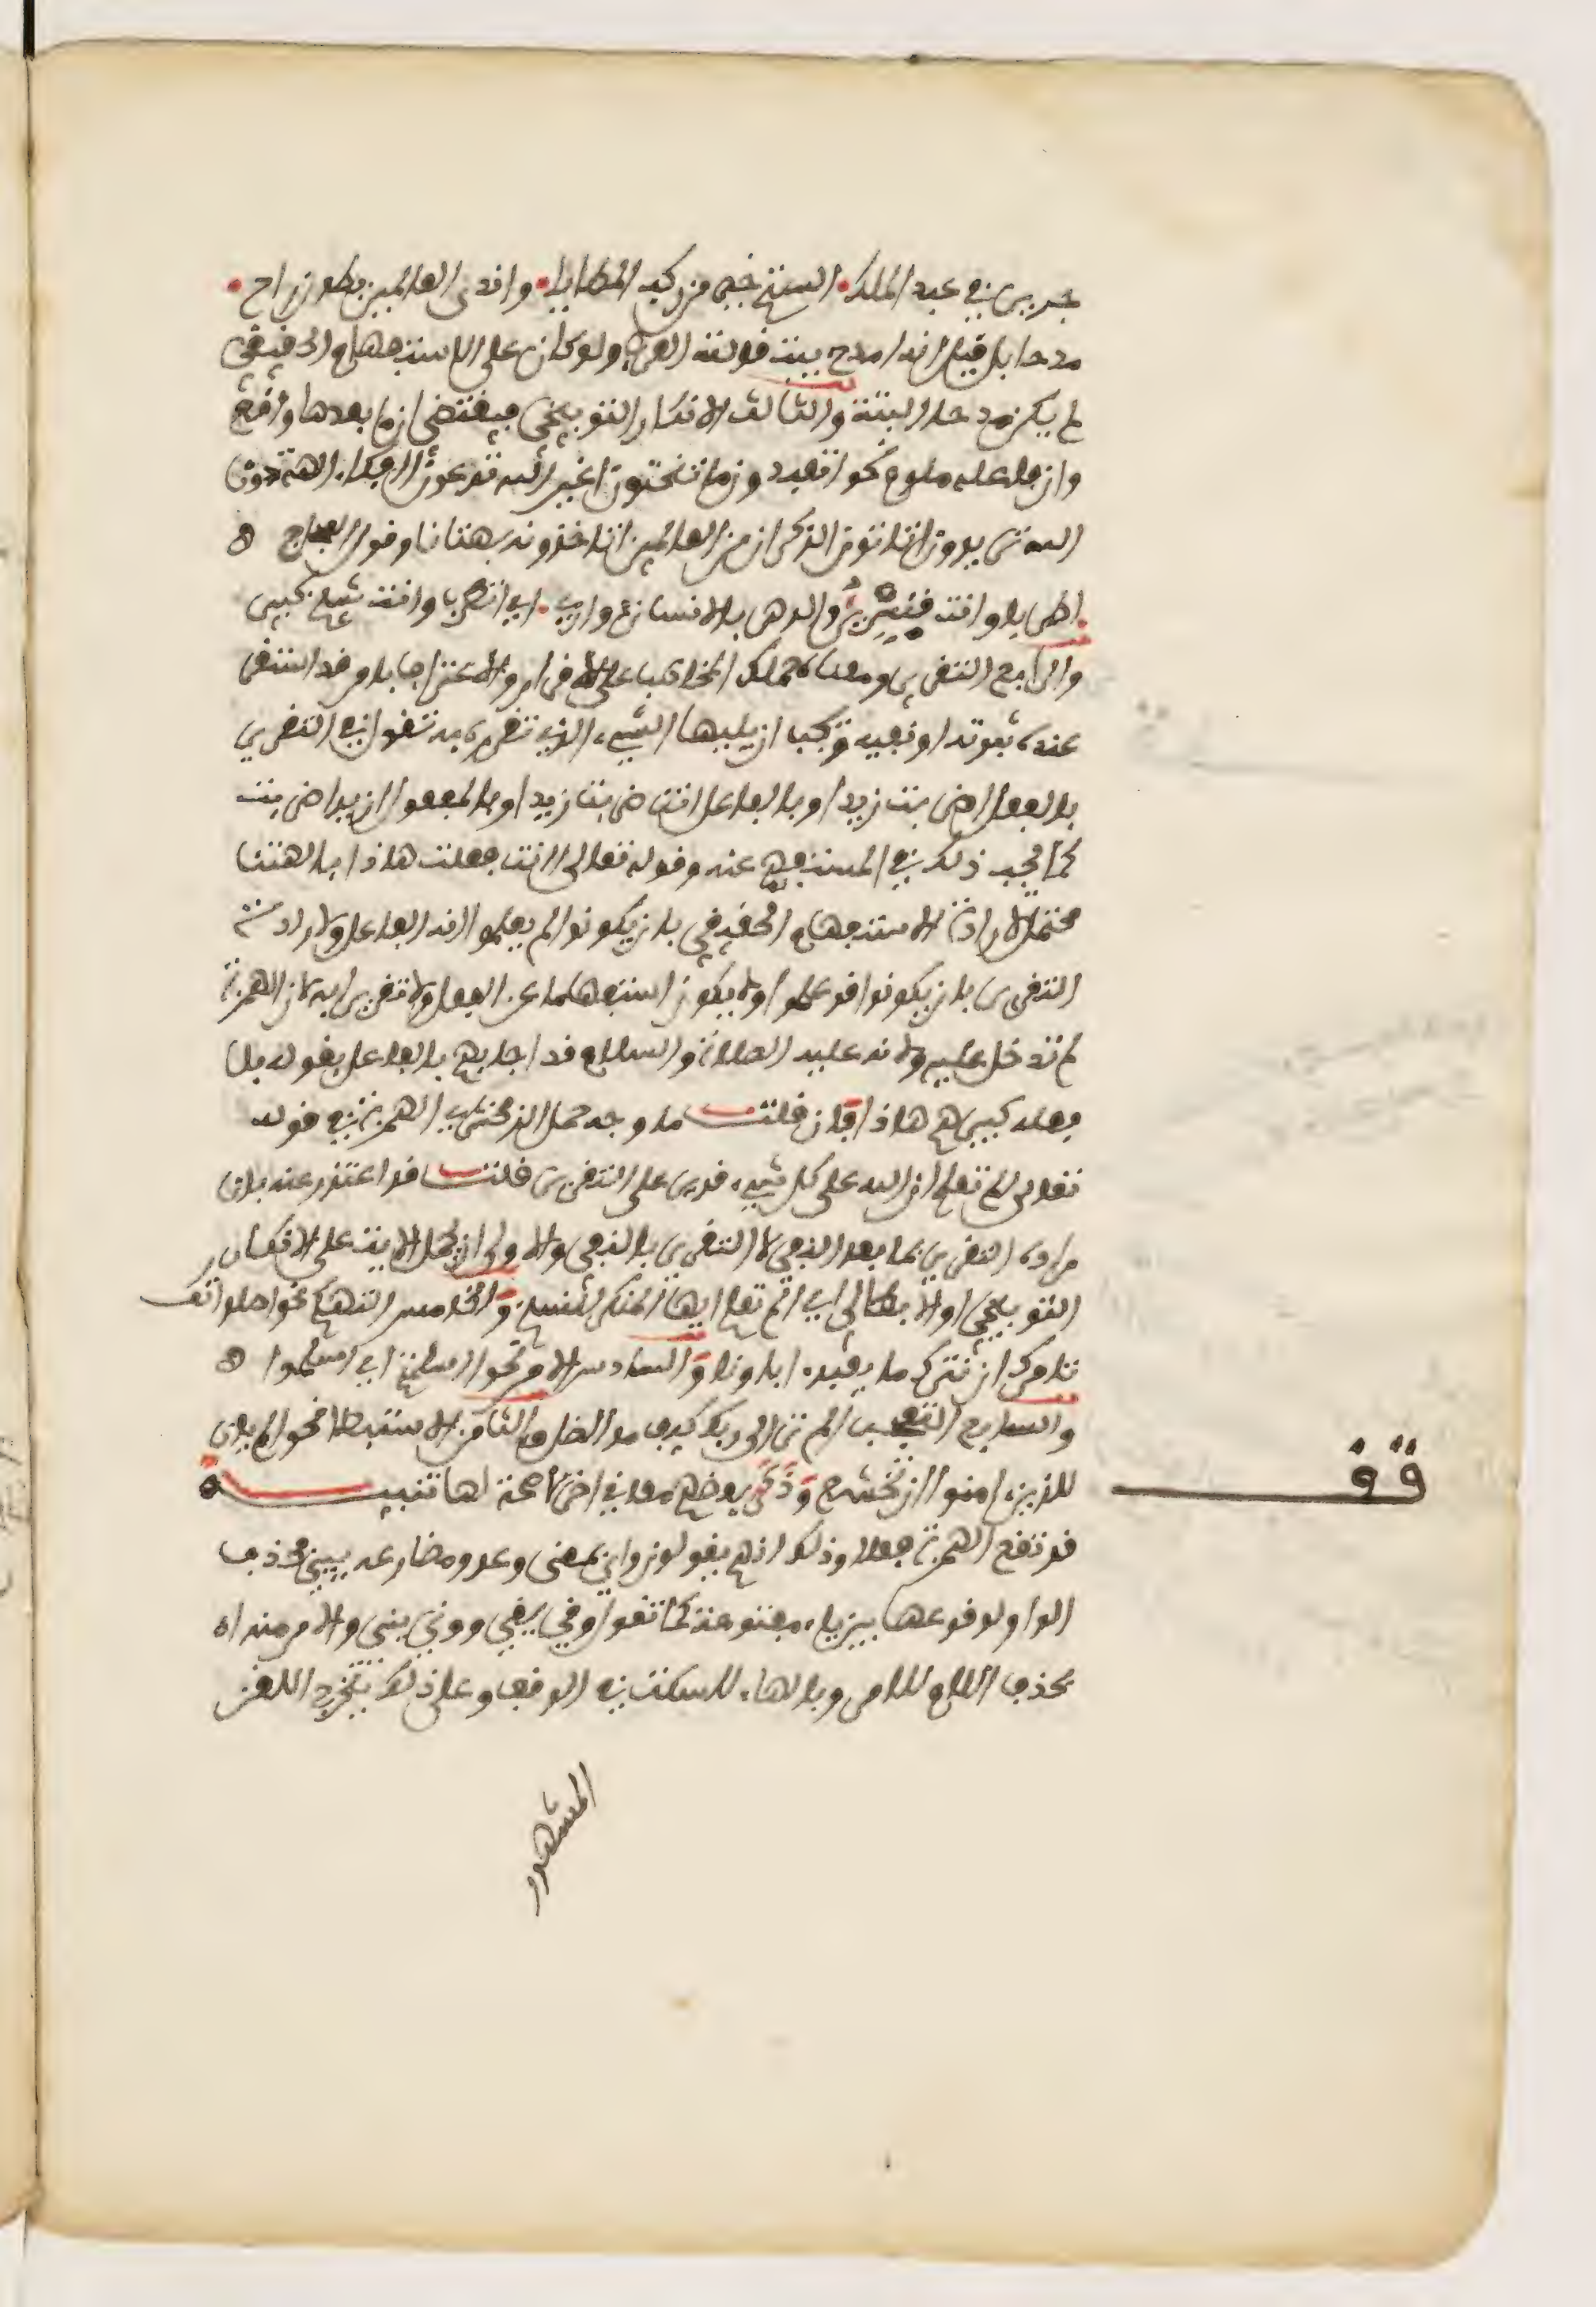 جرير في عبد الملك. الستم خير من ركب المطايا. واندى العالمين بطون راح.
مدحا بل قيل انه امدح بيت قالته العرب ولو كان على الاستفهام الحقيقي
لم يكن مدحا البتة والثالث الانكار التوبيخي فيقتضي ان ما بعدها واقع
وان فاعله ملوم نحو اتعبدون ما تنحتون اغير الله تدعون ائفكا الهة دون
الله تريدون اتاتون الذكران من العالمين اتاخذونه بهتانا وقول العجاج ه
. اطربا وانت قنسري والدهر بالانسان دواري. اي اتطرب وانت شيخ كبير
والرابع التقرير ومعناه حملك المخاطب على الاقرار والاعتراف بامر قد استقر
عنده ثبوته او نفيه ويجب ان يليها الشيء الذي تقرره به تقول في التقرير
بالفعل اضربت زيدا وبالفاعل اانت ضربت زيدا وبالمفعول ازيدا ضربت
كما يجب ذلك في المستفهم عنه وقوله تعالى اانت فعلت هاذا بالهتنا
محتمل لارادة الاستفهام الحقيقي بان يكونوا لم يعلموا انه الفاعل ولارادة
التقرير بان يكونوا قد علموا ولا يكون استفهاما عن الفعل ولا تقريرا به لان الهمزة
لم تدخل عليه ولانه عليه الصلاة والسلام قد اجابهم بالفاعل بقوله بل
فعله كبيرهم هاذا فان قلت ما وجه حمل الزمخشري الهمزة في قوله
تعالى الم تعلم ان الله على كل شيء قدير على التقرير قلت قد اعتذر عنه بان
مراده التقرير بما بعد النفي لا التقرير بالنفي والاولى ان تحمل الاية على الانكار
التوبيخي او الابطالي اي الم تعلم ايها المنكر للنسخ والخامس التهكم نحو اصلواتك
تامرك ان نترك ما يعبد اباونا والسادس الامر نحو ااسلمتم اي اسلموا ه
والسابع التعجب الم تر الى ربك كيف مد الظل والثامن الاستبطاء نحو الم يان
للذين ءامنوا ان تخشع وذكر بعضهم معاني اخر لا صحة لها تنبيـــه
قد تقع الهمزة فعلا وذلك انهم يقولون واى بمعنى وعد ومضارعه يئي بحذف
الواو لوقوعها بين ياء مفتوحة كما تقول وفى يفي وونى يني والامر منه اه
بحذف اللام للامر وبالهاء للسكت في الوقف وعلى ذلك يتخرج اللغز
المشهور
قف